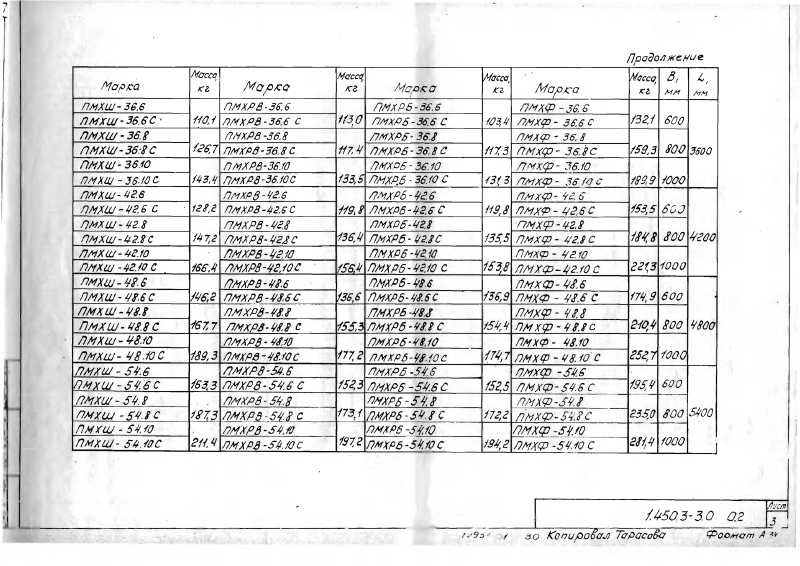 Продолжение
Марка Масса, кг Марка Масса, кг Марка Масса, кг Марка Масса, кг B, мм L, мм
ПМХШ-36.6 ПМХРВ-36.6 ПМХРБ-36.6 ПМХФ-36.6
ПМХШ-36.6 С 110,1 ПМХРВ-36.6 С 113,0 ПМХРБ-36.6 С 103,4 ПМХФ-36.6 С 132,1 600
ПМХШ-36.8 ПМХРВ-36.8 ПМХРБ-36.8 ПМХФ-36.8
ПМХШ-36.8 С 126,7 ПМХРВ-36.8 С 117,4 ПМХРБ-36.8 С 117,3 ПМХФ-36.8 С 159,3 800 3600
ПМХШ-36.10 ПМХРВ-36.10 ПМХРБ-36.10 ПМХФ-36.10
ПМХШ-36.10 С 143,4 ПМХРВ-36.10 С 133,5 ПМХРБ-36.10 С 131,3 ПМХФ-36.10 С 189,9 1000
ПМХШ-42.6 ПМХРВ-42.6 ПМХРБ-42.6 ПМХФ-42.6
ПМХШ-42.6 С 128,2 ПМХРВ-42.6 С 119,8 ПМХРБ-42.6 С 119,8 ПМХФ-42.6 С 153,5 600
ПМХШ-42.8 ПМХРВ-42.8 ПМХРБ-42.8 ПМХФ-42.8
ПМХШ-42.8 С 147,2 ПМХРВ-42.8 С 136,4 ПМХРБ-42.8 С 135,5 ПМХФ-42.8 С 184,8 800 4200
ПМХШ-42.10 ПМХРВ-42.10 ПМХРБ-42.10 ПМХФ-42.10
ПМХШ-42.10 С 166,4 ПМХРВ-42.10 С 156,4 ПМХРБ-42.10 С 153,8 ПМХФ-42.10 С 221,3 1000
ПМХШ-48.6 ПМХРВ-48.6 ПМХРБ-48.6 ПМХФ-48.6
ПМХШ-48.6 С 146,2 ПМХРВ-48.6 С 136,6 ПМХРБ-48.6 С 136,9 ПМХФ-48.6 С 174,9 600
ПМХШ-48.8 ПМХРВ-48.8 ПМХРБ-48.8 ПМХФ-48.8
ПМХШ-48.8 С 167,7 ПМХРВ-48.8 С 155,3 ПМХРБ-48.8 С 154,4 ПМХФ-48.8 С 210,4 800 4800
ПМХШ-48.10 ПМХРВ-48.10 ПМХРБ-48.10 ПМХФ-48.10
ПМХШ-48.10 С 189,3 ПМХРВ-48.10 С 177,2 ПМХРБ-48.10 С 174,7 ПМХФ-48.10 С 252,7 1000
ПМХШ-54.6 ПМХРВ-54.6 ПМХРБ-54.6 ПМХФ-54.6
ПМХШ-54.6 С 163,3 ПМХРВ-54.6 С 152,3 ПМХРБ-54.6 С 152,5 ПМХФ-54.6 С 195,4 600
ПМХШ-54.8 ПМХРВ-54.8 ПМХРБ-54.8 ПМХФ-54.8
ПМХШ-54.8 С 187,3 ПМХРВ-54.8 С 173,1 ПМХРБ-54.8 С 172,2 ПМХФ-54.8 С 235,0 800 5400
ПМХШ-54.10 ПМХРВ-54.10 ПМХРБ-54.10 ПМХФ-54.10
ПМХШ-54.10 С 211,4 ПМХРВ-54.10 С 197,2 ПМХРБ-54.10 С 194,2 ПМХФ-54.10 С 281,4 1000
1.450.3-3.0 0.2 Лист 3
30 Копировал Тарасова Формат